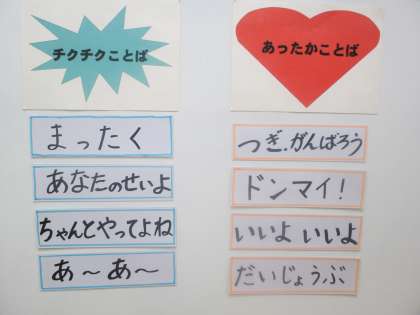 チクチクことば
まったく
あなたのせいよ
ちゃんとやってよね
あ～あ～
あったかことば
つぎ.がんばろう
ドンマイ!
いいよ いいよ
だいじょうぶ